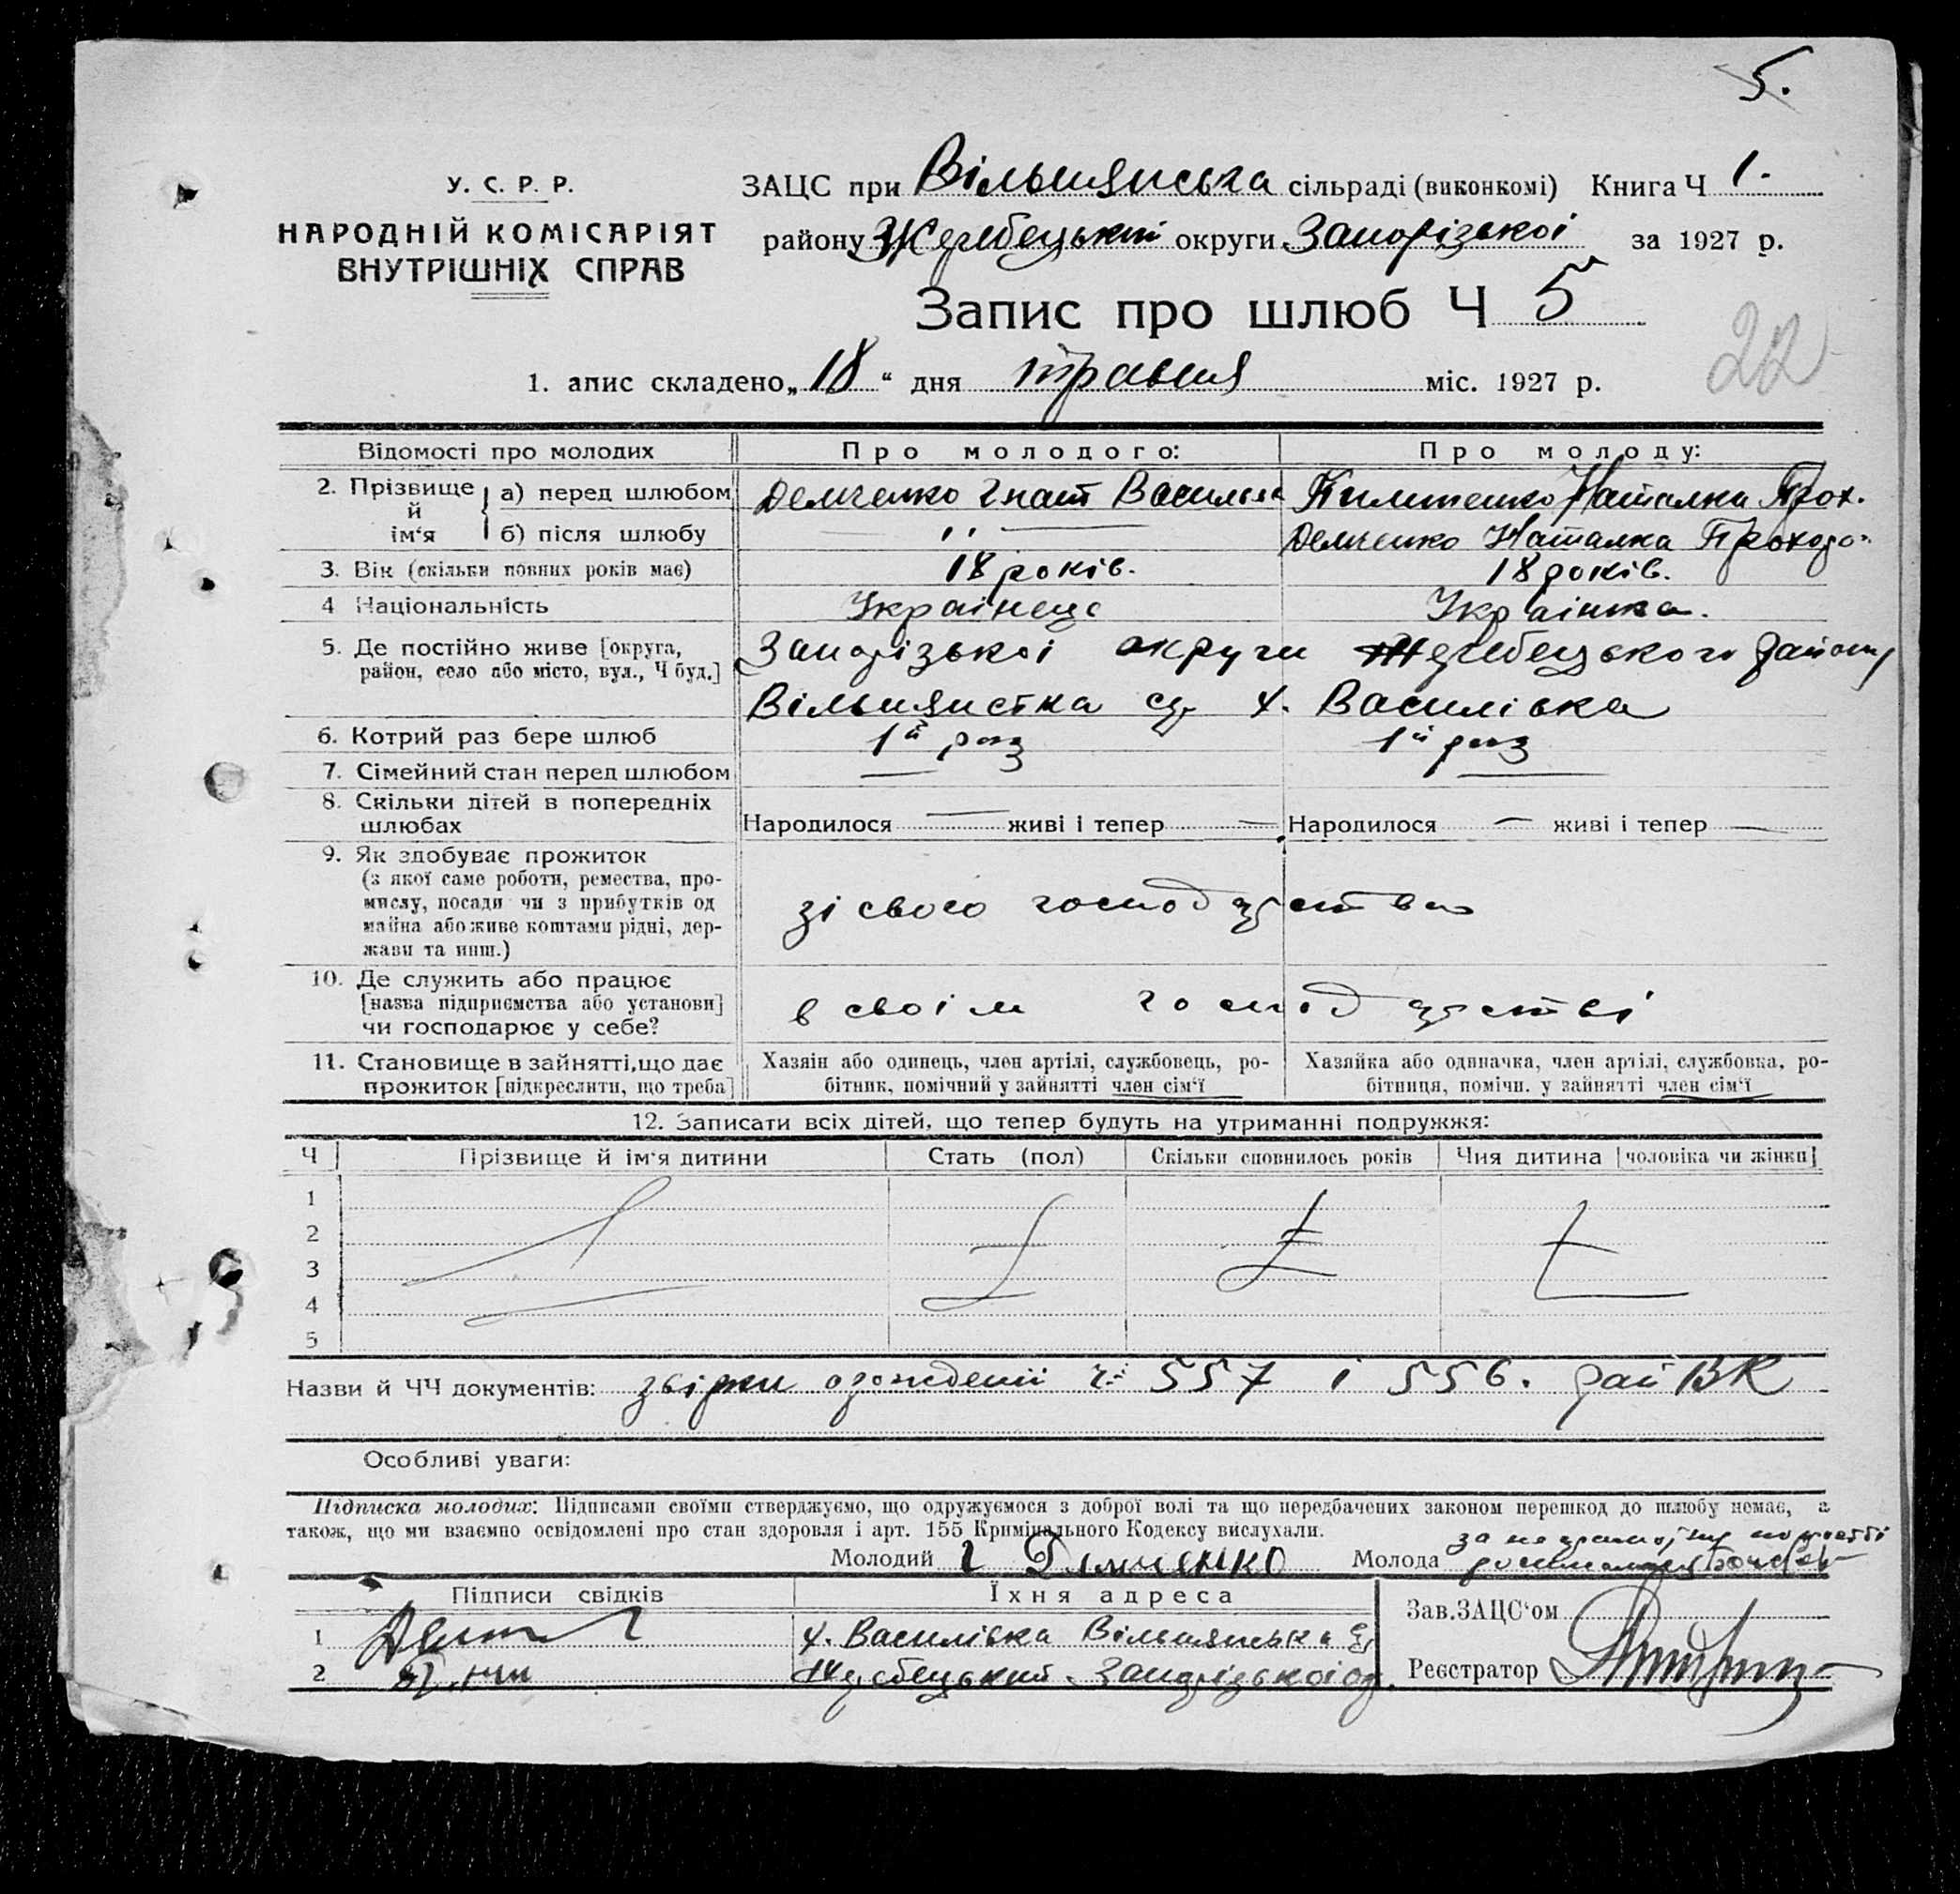 5.
У. С. Р. Р.
НАРОДНІЙ КОМІСАРІЯТ
ВНУТРІШНІХ СПРАВ
ЗАЦС при Вільнянська сільраді (виконкомі) Книга Ч 1.
району Жеребецький округи Запорізької за 1927 р.
Запис про шлюб Ч 5
22
1. апис складено „18“ дня травня міс. 1927 р.
Відомості про молодих Про молодого: Про молоду:
2. Прізвище й ім‘я а) перед шлюбом Демченко Гнат Васильк Пилипенко Наталка Прох.
б) після шлюбу " Демченко Наталка Прохоро
3. Вік (скільки повних років має) 18 років. 18 років.
4 Національність Українець Українка.
5. Де постійно живе [округа, район, село або місто, вул., Ч буд.] Запорізької округи Жеребецького району
Вільнянська с/р х. Василівка
6. Котрий раз бере шлюб 1й раз 1й раз
7. Сімейний стан перед шлюбом — —
8. Скільки дітей в попередніх шлюбах Народилося — живі і тепер — Народилося — живі і тепер —
9. Як здобуває прожиток
(з якої саме роботи, ремества, про-
мислу, посади чи з прибутків од
майна або живе коштами рідні, дер-
жави та инш.)
зі свого господарства
10. Де служить або працює
[назва підприємства або установи]
чи господарює у себе?
в своїм господарстві
11. Становище в зайнятті, що дає
прожиток [підкреслити, що треба]
Хазяін або одинець, член артілі, службовець, ро-
бітник, помічний у зайнятті член сім‘ї
Хазяйка або одиначка, член артілі, службовка, ро-
бітниця, помічн. у зайнятті член сім‘ї
12. Записати всіх дітей, що тепер будуть на утриманні подружжя:
Ч Прізвище й ім‘я дитини Стать (пол) Скільки сповнилось років Чия дитина [чоловіка чи жінки]
1
2
3
4
5
Назви й ЧЧ документів: 557 і 556. рай ВК
Особливі уваги:
Підписка молодих: Підписами своїми стверджуємо, що одружуємося з доброї волі та що передбачених законом перешкод до шлюбу немає, а
також, що ми взаємно освідомлені про стан здоровля і арт. 155 Кримінального Кодексу вислухали.
Молодий Г Демченко Молода
Підписи свідків Їхня адреса
1 х. Василівка Вільнянська с/р
2 Жеребецький Запорізької ок.
Зав. ЗАЦС‘ом
Реєстратор